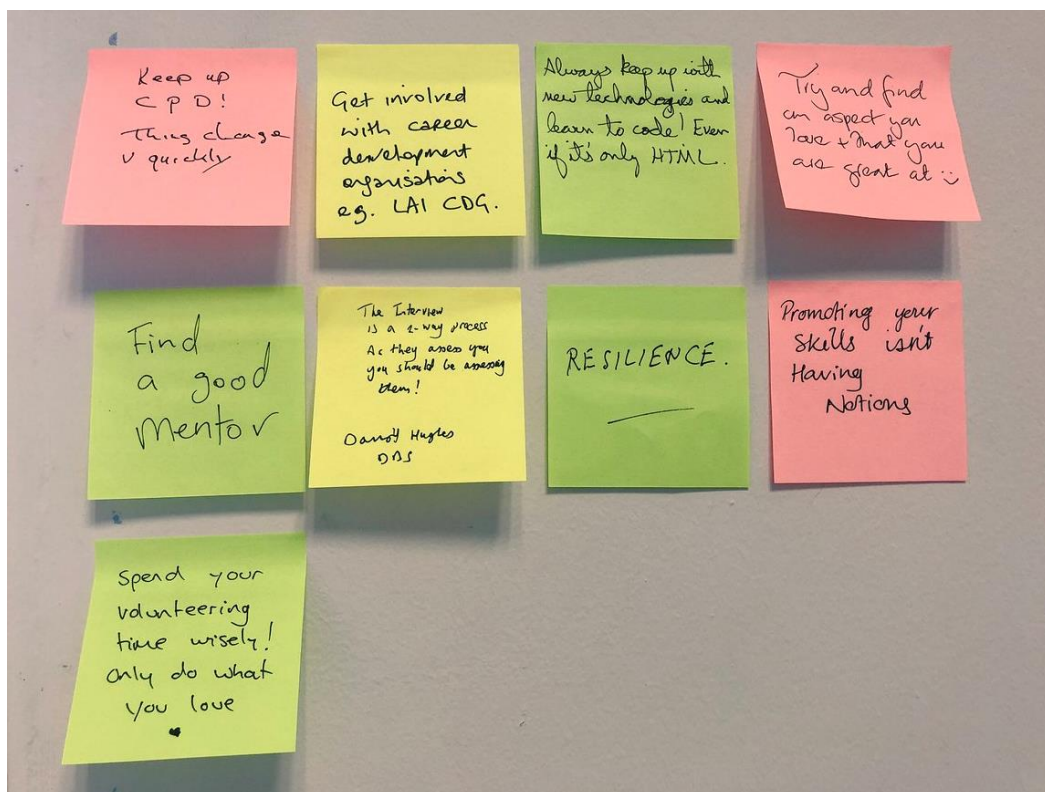 Keep up
CPD!
Things change
v quickly
Get involved
with career
development
organisations
eg. LAI CDG.
Always keep up with
new technologies and
learn to code! Even
if it's only HTML.
Try and find
an aspect you
love + that you
are great at :)
Find
a good
Mentor
The Interview
is a 2-way process
As they assess you
you should be assessing
them!
Hughes
DBS
RESILIENCE.
Promoting your
Skills isn't
Having
Notions
Spend your
volunteering
time wisely!
Only do what
you love
♥